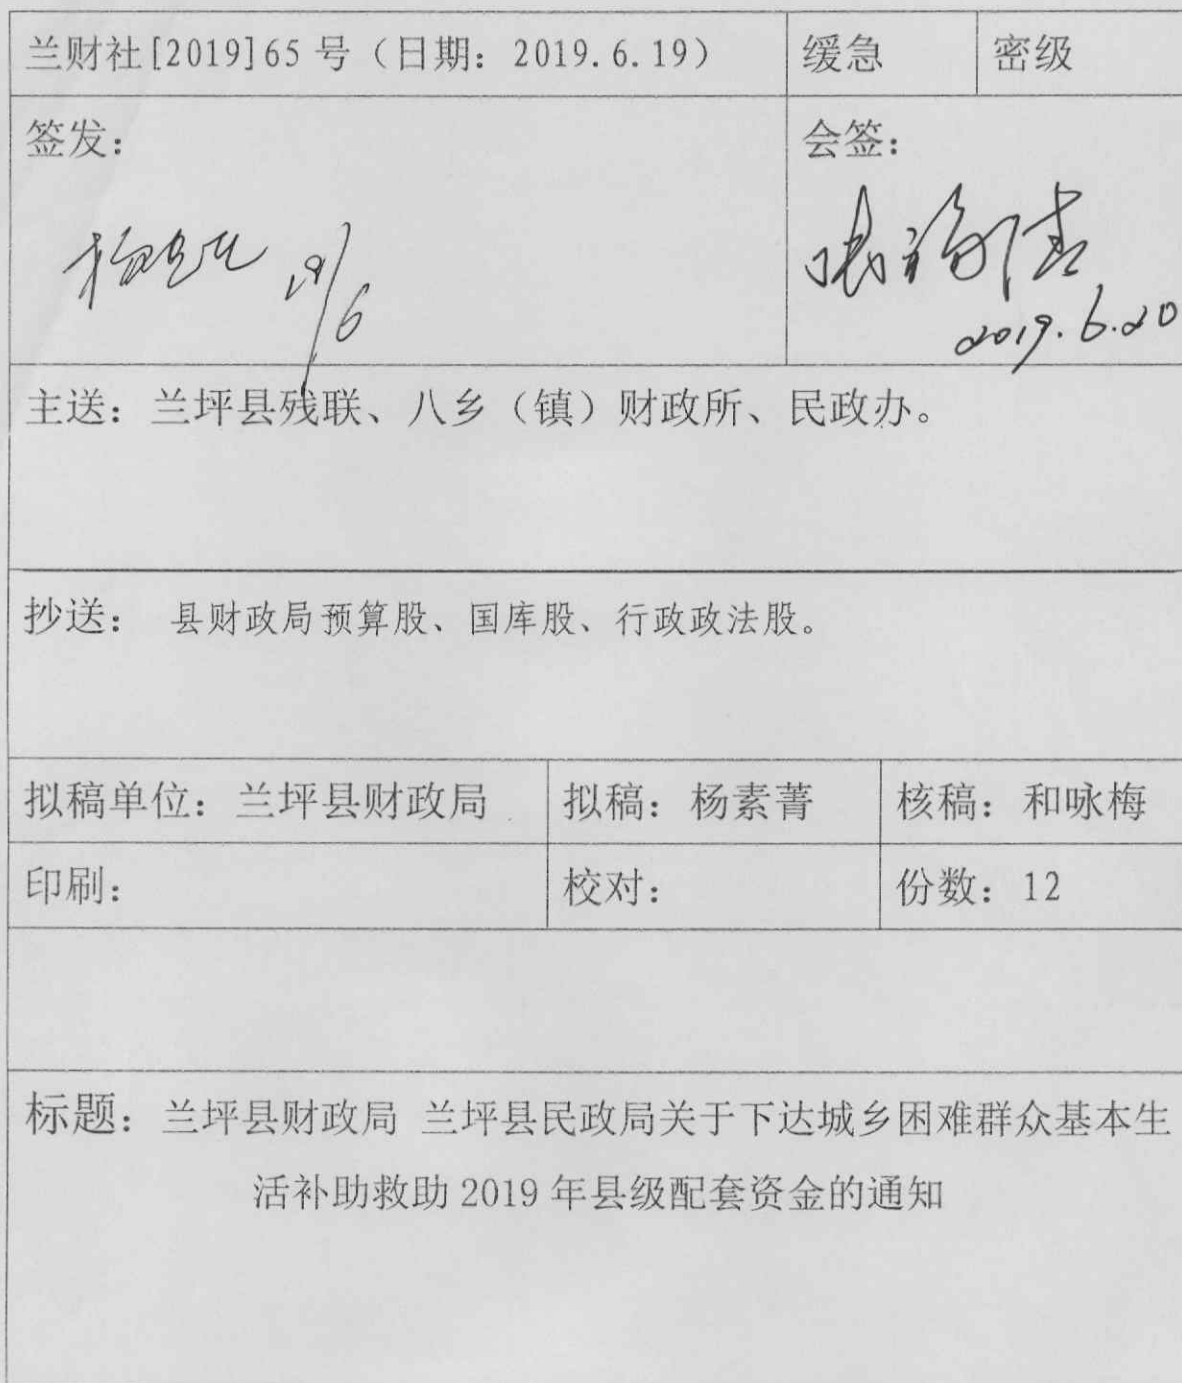 兰财社[2019]65号（日期：2019.6.19）
缓急
密级
签发：
19/6
会签：
2019.6.20
主送：兰坪县残联、八乡（镇）财政所、民政办。
抄送： 县财政局预算股、国库股、行政政法股。
拟稿单位：兰坪县财政局
拟稿：杨素菁
核稿：和咏梅
印刷：
校对：
份数：12
标题：兰坪县财政局 兰坪县民政局关于下达城乡困难群众基本生
活补助救助2019年县级配套资金的通知